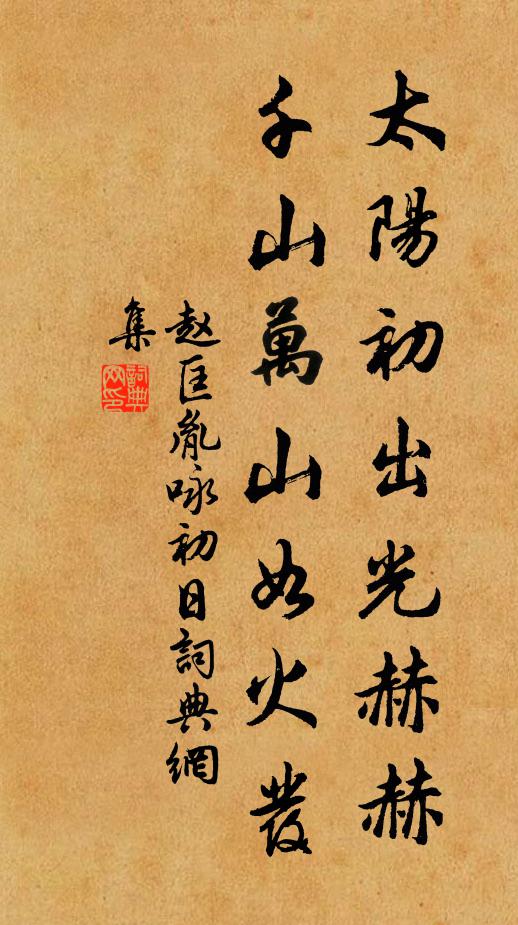 太陽初出光赫赫
千山萬山如火發
赵匡胤咏初日詞典網
集
詞典
网印